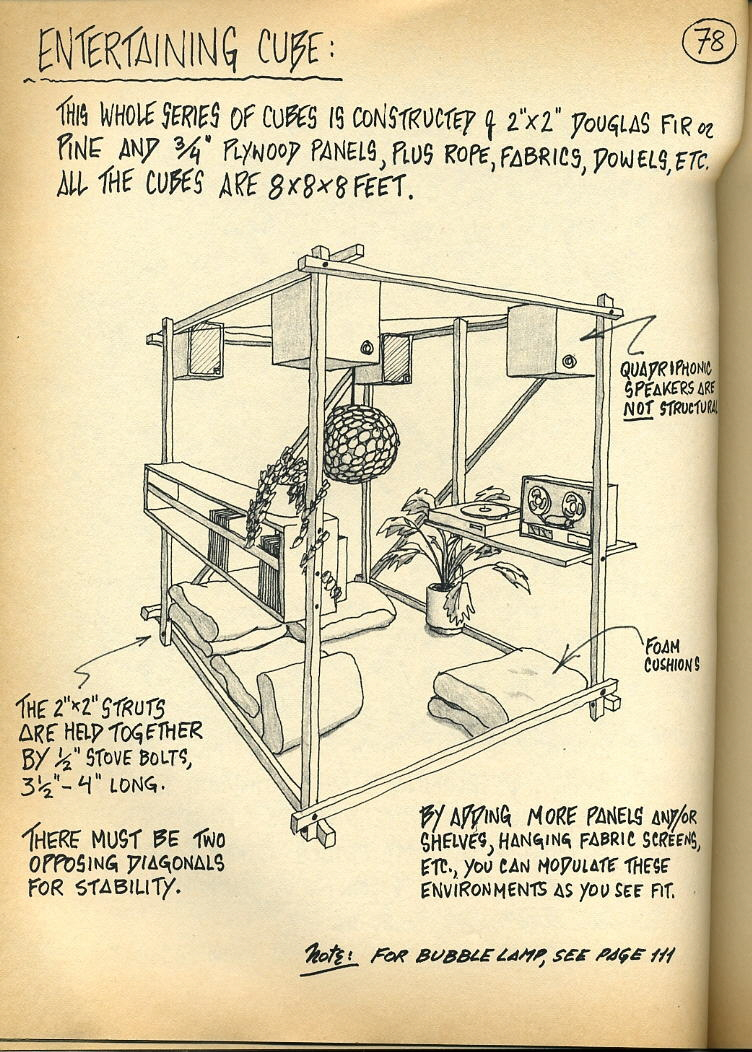 ENTERTAINING CUBE:
78
THIS WHOLE SERIES OF CUBES IS CONSTRUCTED of 2"x2" DOUGLAS FIR or
PINE AND 3/4" PLYWOOD PANELS, PLUS ROPE, FABRICS, DOWELS, ETC.
ALL THE CUBES ARE 8x8x8 FEET.
QUADRIPHONIC
SPEAKERS ARE
NOT STRUCTURAL
FOAM
CUSHIONS
THE 2"x2" STRUTS
ARE HELD TOGETHER
BY 1/2" STOVE BOLTS,
3 1/2" - 4" LONG.
THERE MUST BE TWO
OPPOSING DIAGONALS
FOR STABILITY.
BY ADDING MORE PANELS AND/OR
SHELVES, HANGING FABRIC SCREENS,
ETC., YOU CAN MODULATE THESE
ENVIRONMENTS AS YOU SEE FIT.
Note: FOR BUBBLE LAMP, SEE PAGE 111